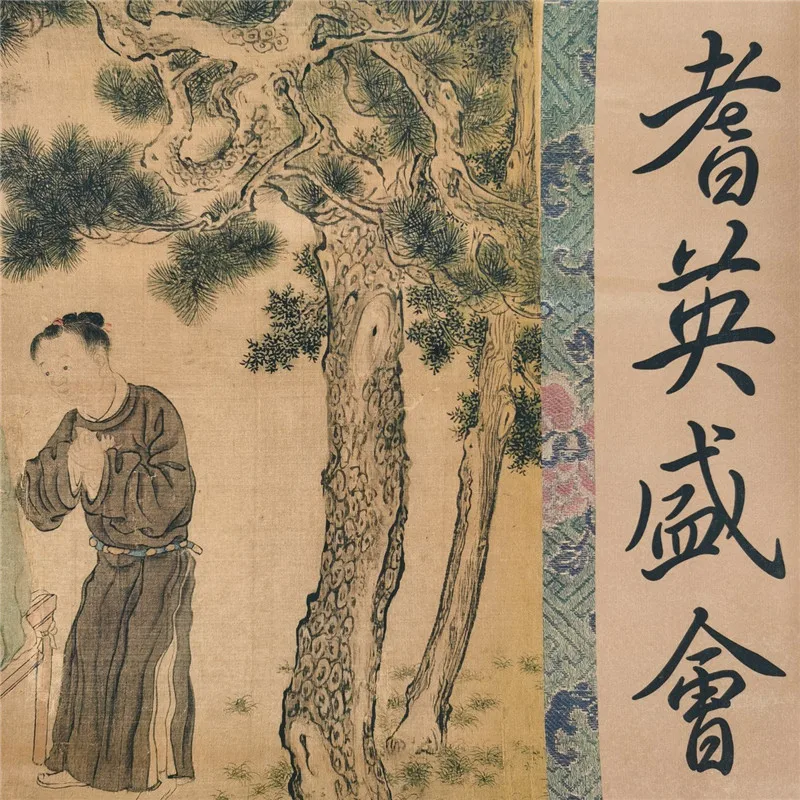 耆英盛會